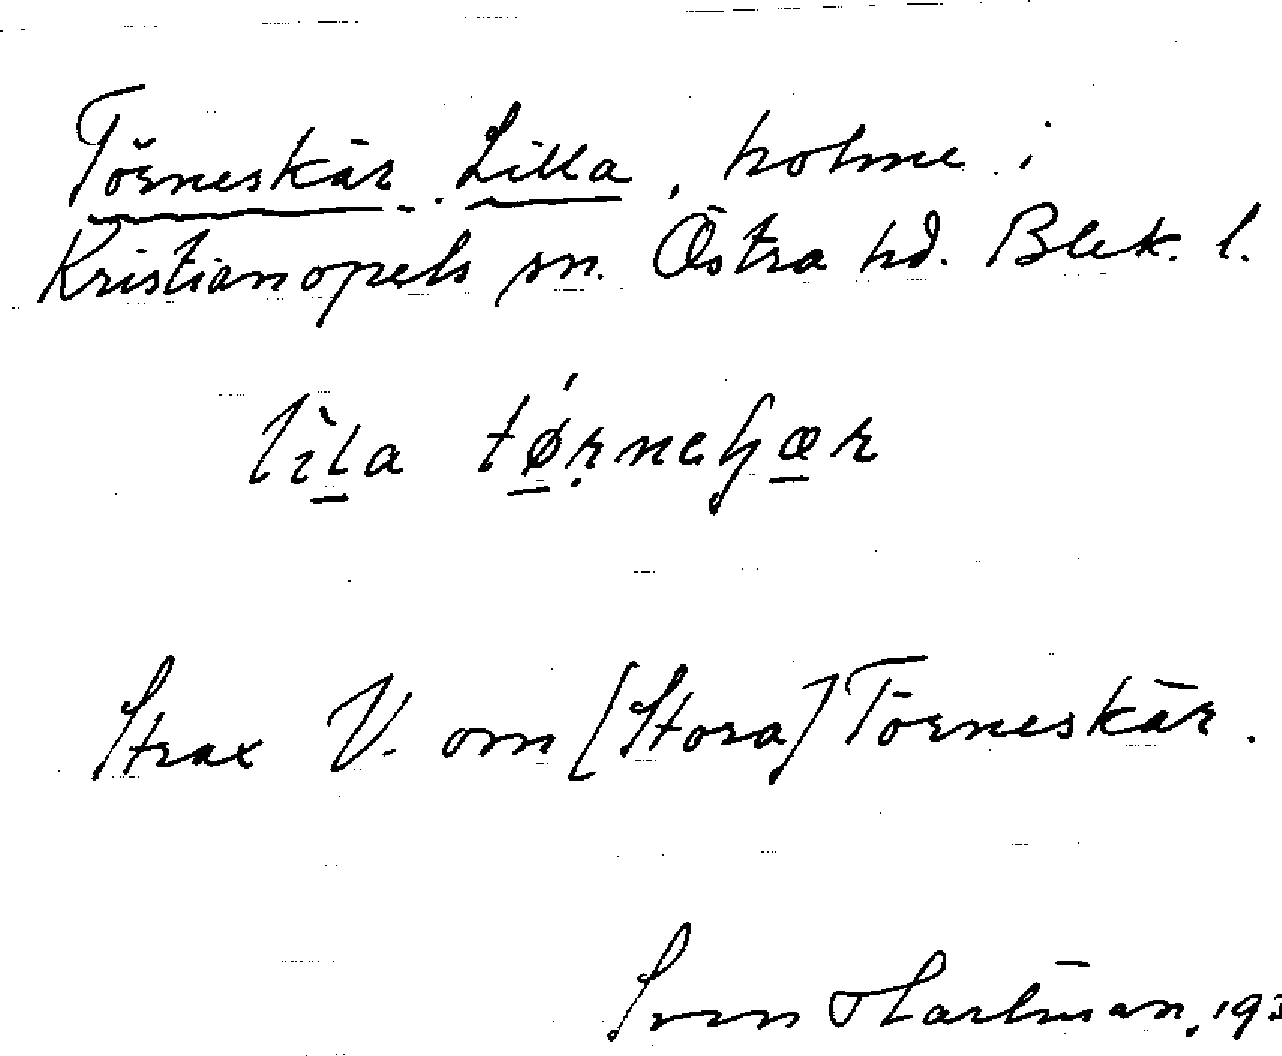 Törneskär, Lilla, holme i
Kristianopels sn. Östra hd. Blek. l.
lìla tǿrneɧær
Strax V. om [Stora] Törneskär.
Sven Hartman, 193